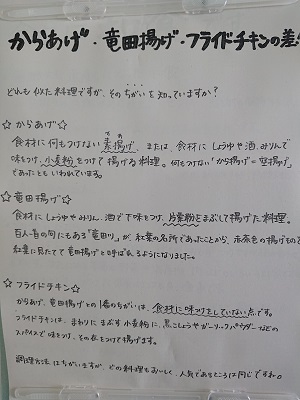 からあげ・竜田揚げ・フライドチキンの差
どれも似た料理ですが、そのちがいを知っていますか?
☆からあげ☆
食材に何もつけない素揚げ、または、食材にしょうゆや酒、みりんで
味をつけ、小麦粉をつけて揚げる料理。何もつけない「から揚げ=空揚げ」
であったともいわれています。
☆竜田揚げ☆
食材にしょうゆやみりん、酒で下味をつけ、片栗粉をまぶして揚げた料理。
百人一首の句にもある「竜田川」が、紅葉の名所であったことから、赤茶色の揚げもの
紅葉に見たてて竜田揚げと呼ばれるようになりました。
☆フライドチキン☆
からあげ、竜田揚げとの1番のちがいは、食材に味つけをしていない点です。
フライドチキンは、まわりにまぶす小麦粉に、黒こしょうやガーリックパウダーなどの
スパイスで味をつけ、その衣をつけて揚げます。
調理方法はちがいますが、どの料理もおいしく、人気であるところは同じですね。